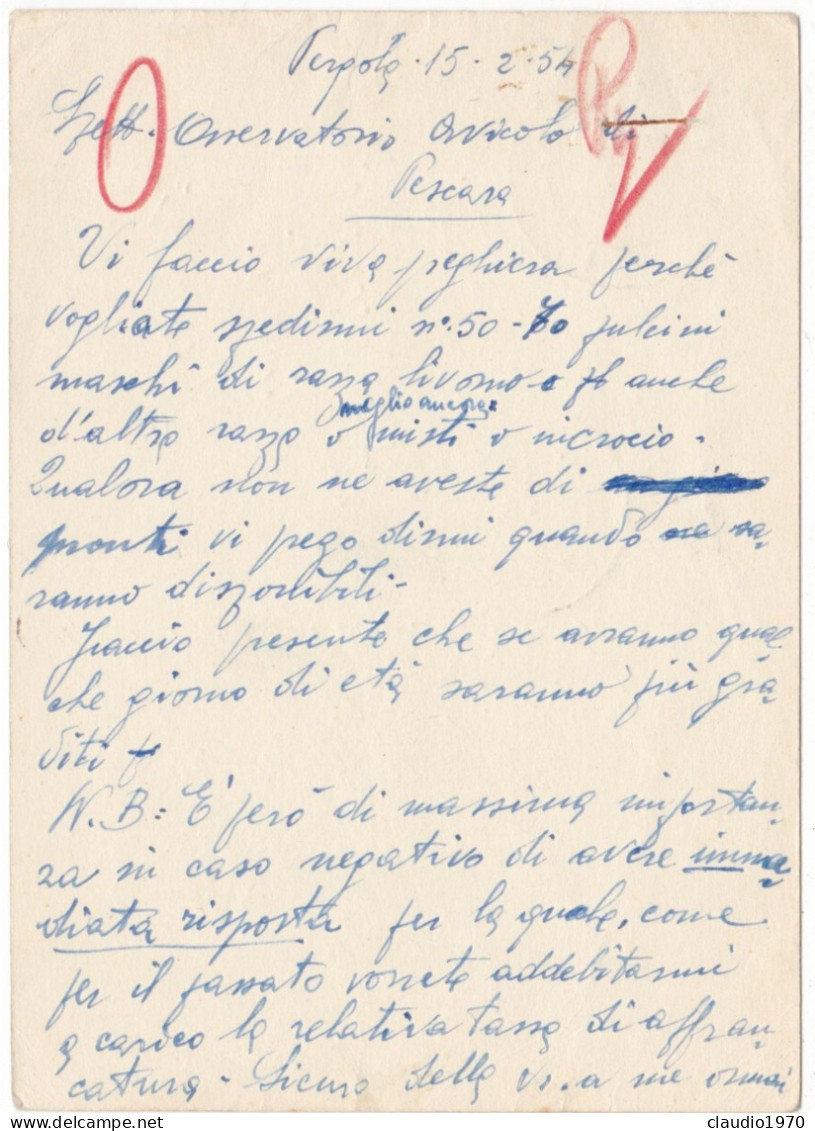 Pergola. 15-2-54
Spett. Osservatorio Avicolo di
Pescara
Vi faccio viva peghiera perchè
vogliate spedirmi n°. 50-70 pulcini
maschi di razza livorno o anche
meglio ancora
d'altra razza o misti o incrocio.
Qualora non ne aveste di
pronti vi pego dirmi quando sa-
ranno disponibili-
Faccio presente che se avranno qual-
che giorno di età saranno più gra-
diti
N.B: E' però di massima importan-
za in caso negativo di avere imme-
diata risposta per la quale, come
per il passato vorrete addebitarmi
a carico la relativa tassa di affran-
catura- Sicuro della Vs. a me ormai
claudio1970